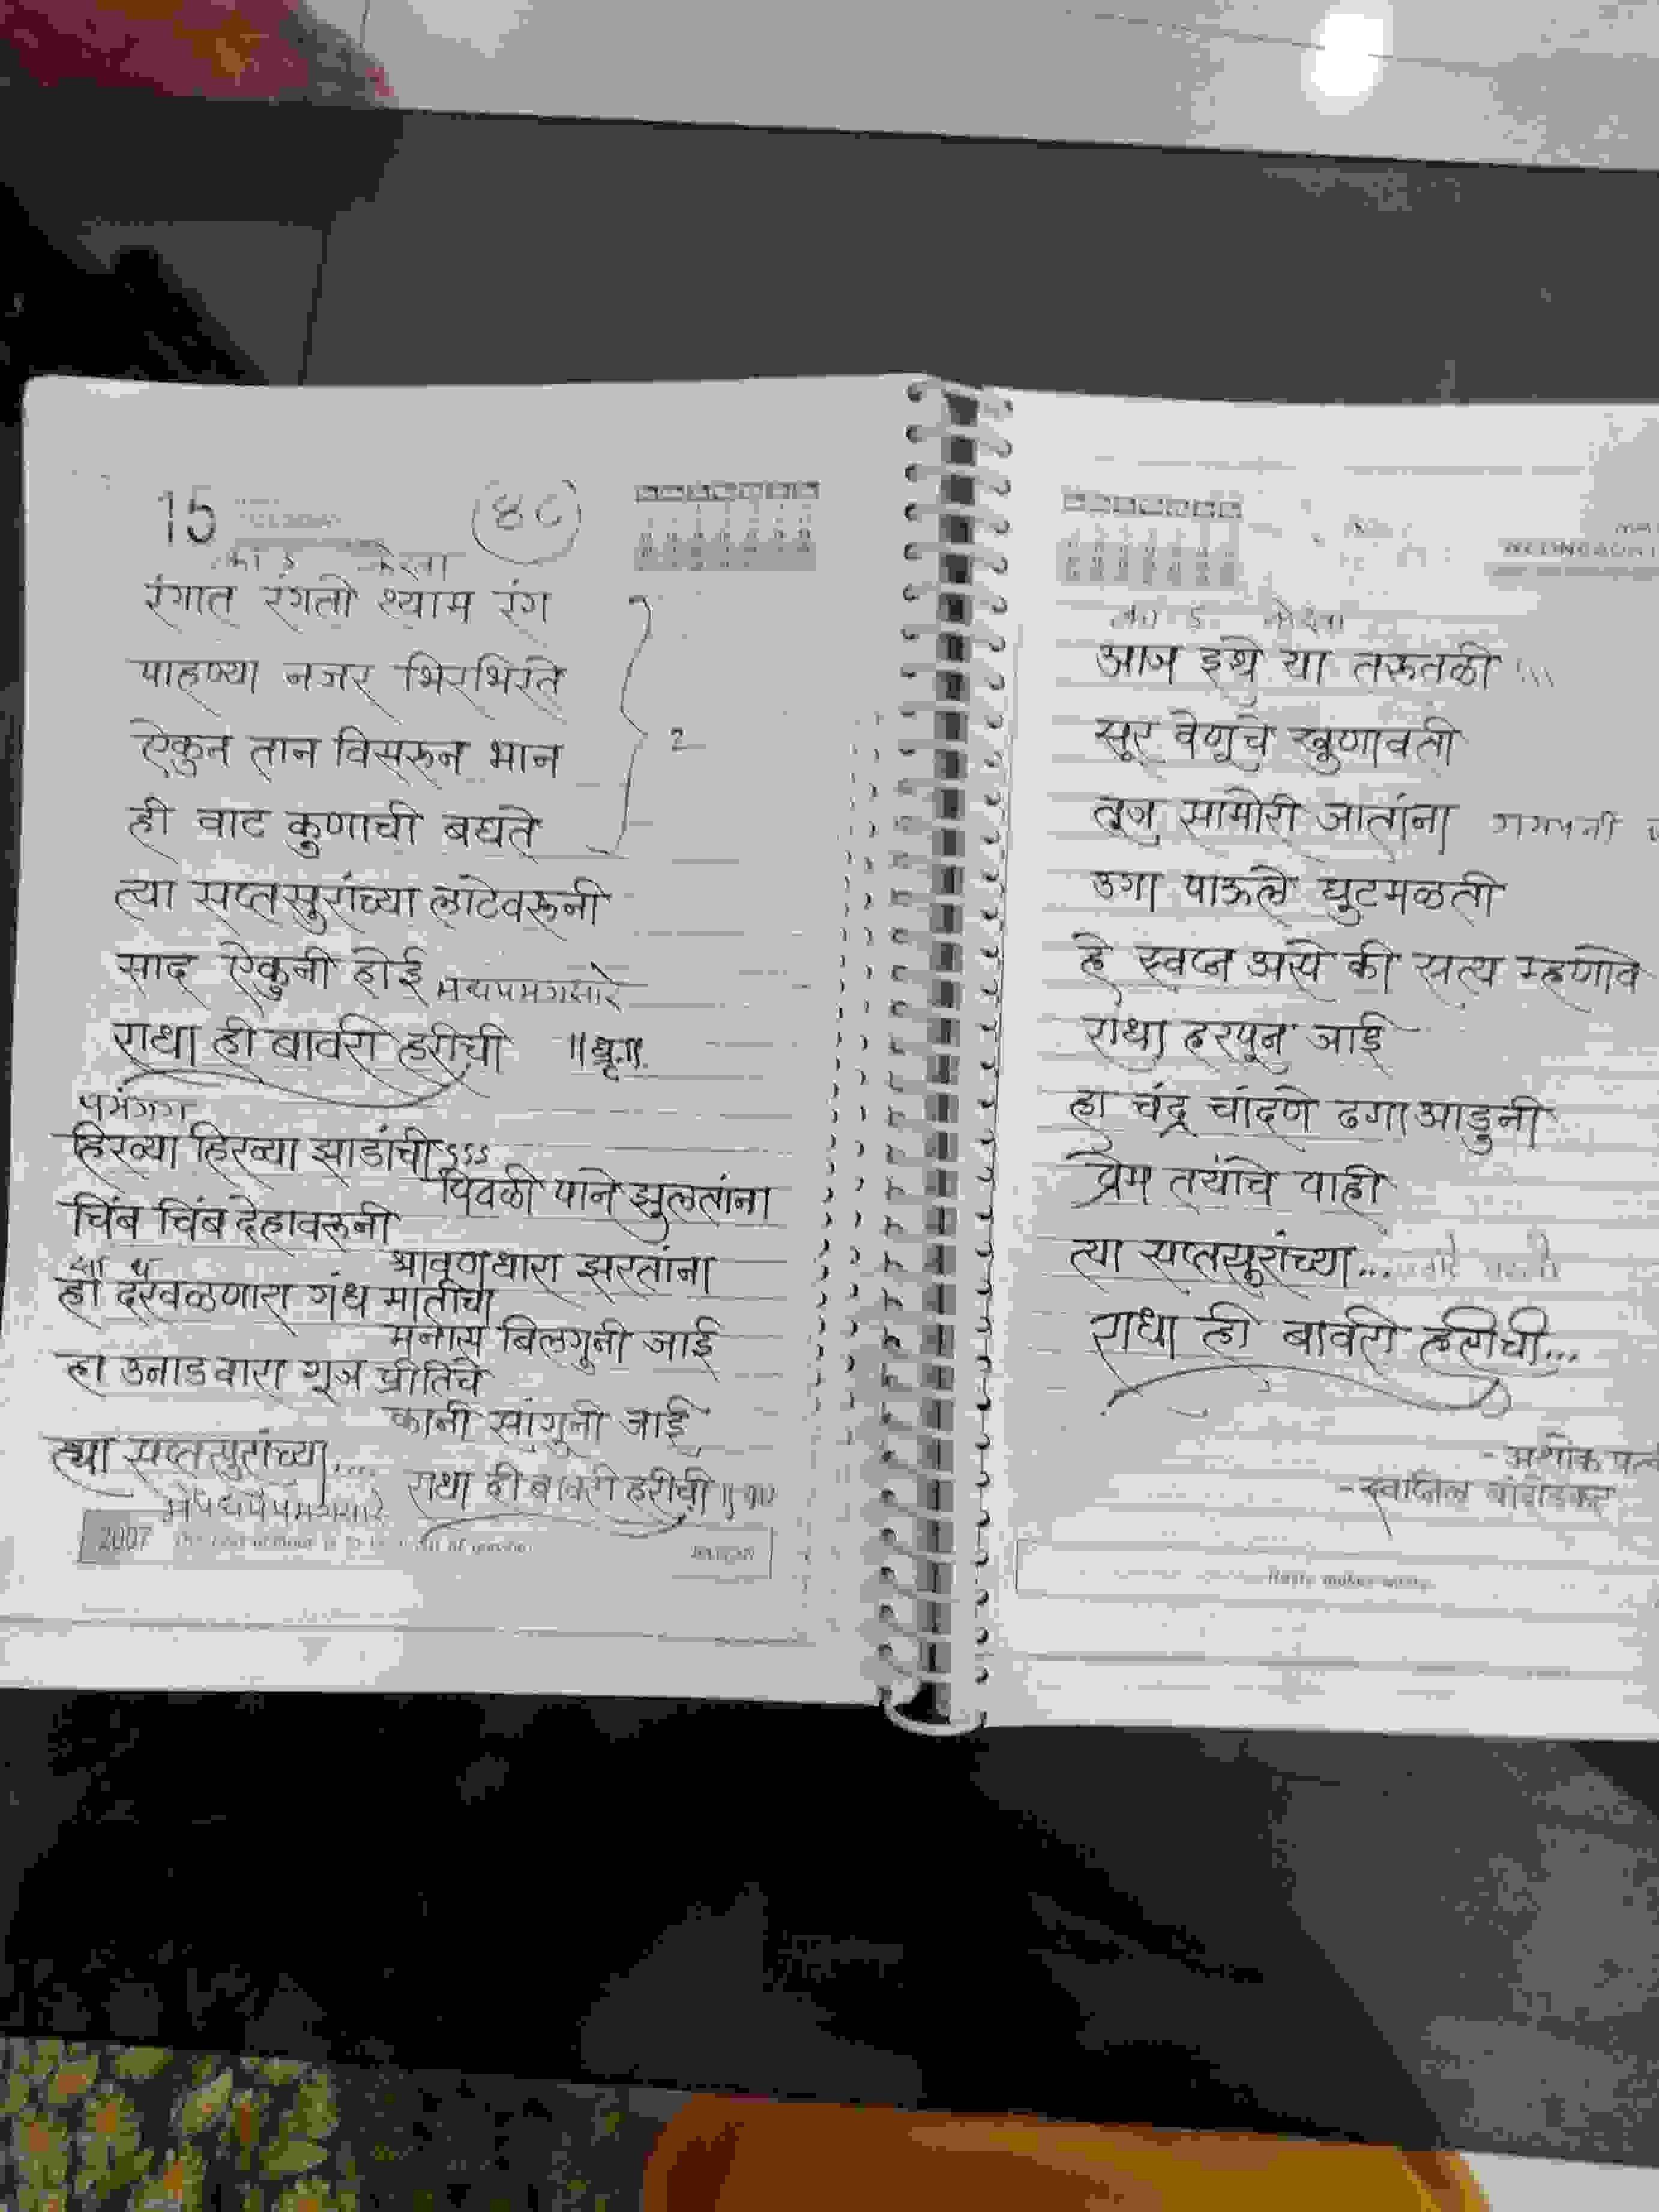 15
रंगात रंगतो श्याम रंग
पाहण्या नजर भिरभिरते
ऐकुन तान विसरून भान
2
ही वाट कुणाची बघते
त्या सप्तसुरांच्या लाटेवरूनी
साद ऐकुनी होई
राधा ही बावरी हरीची ॥ध्रृ.॥
हिरव्या हिरव्या झाडांची ऽऽऽ
पिवळी पाने झुलतांना
चिंब चिंब देहावरूनी
श्रावणधारा झरतांना
हा दरवळणारा गंध मातीचा
मनास बिलगुनी जाई
हा उनाड वारा गूज प्रीतिचे
कानी सांगुनी जाई
त्या सप्तसुरांच्या....
राधा ही बावरी हरीची ॥१॥
2007
आज इथे या तरूतळी
सूर वेणूचे खुणावती
तुज सामोरी जातांना
उगा पाऊले घुटमळती
हे स्वप्न असे की सत्य म्हणावे
राधा हरपून जाई
हा चंद्र चांदणे ढगा आडुनी
प्रेम तयांचे पाही
त्या सप्तसूरांच्या...
राधा ही बावरी हरीची...
- अशोक
- स्वप्निल बांदोडकर
Haste makes waste